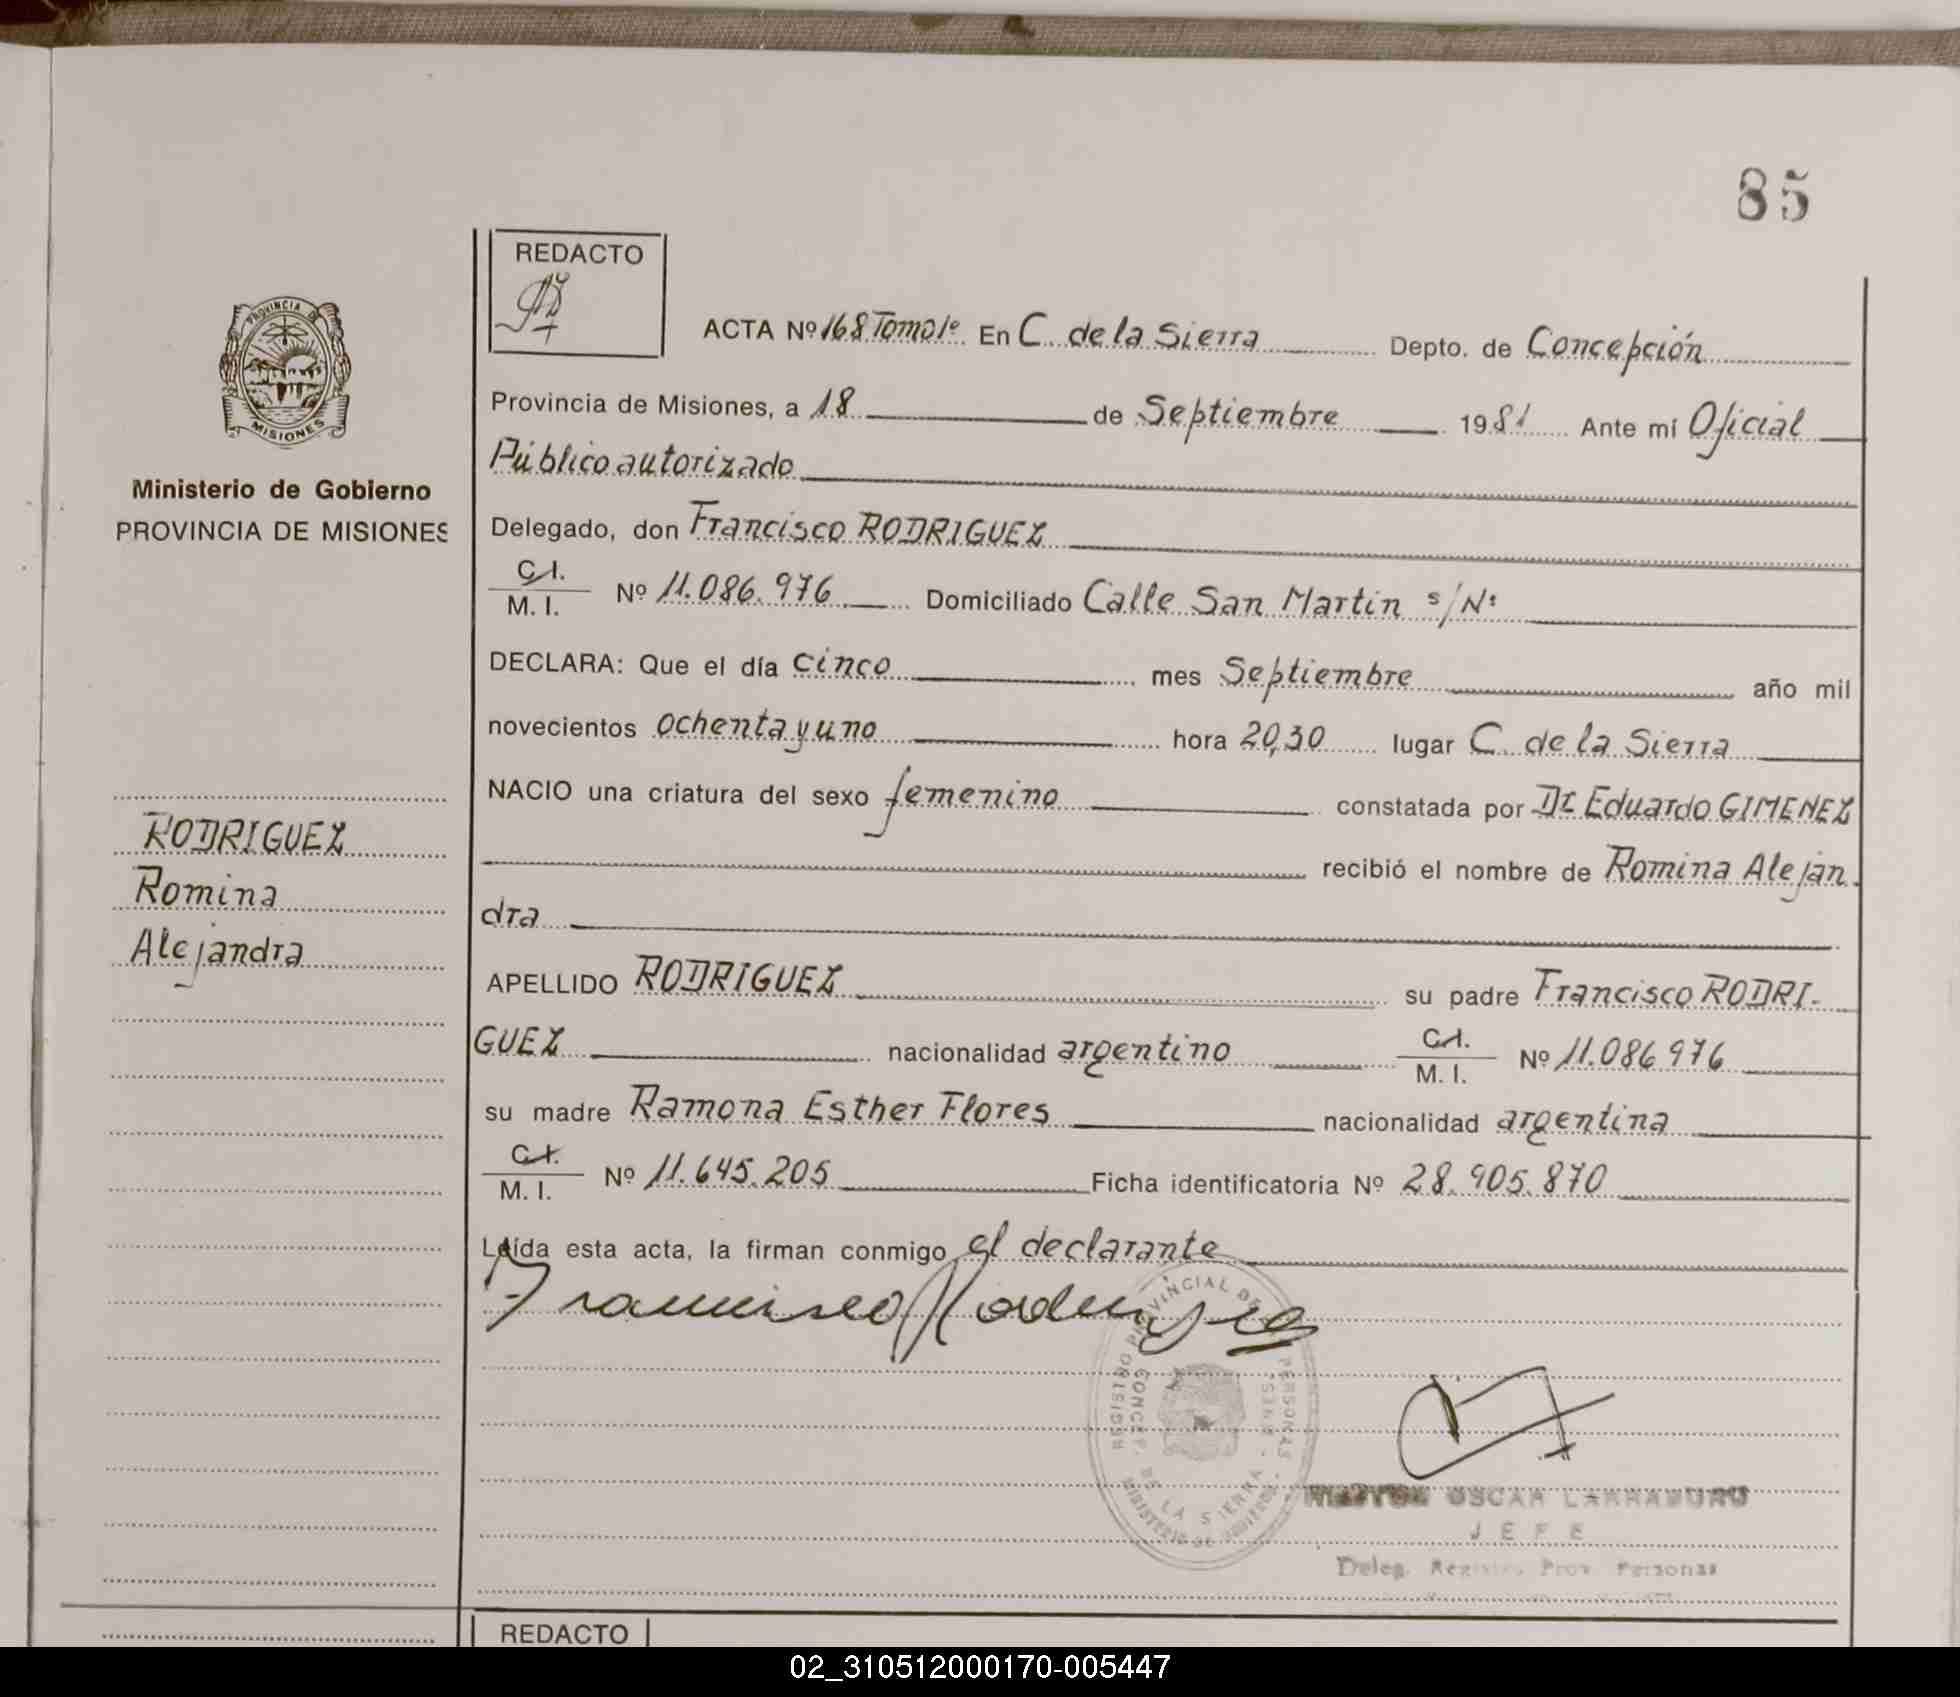 85
REDACTO
ACTA Nº 168 Tomo 1º En C. de la Sierra Depto. de Concepción
PROVINCIA DE
MISIONES
Provincia de Misiones, a 18 de Septiembre 1981 Ante mí Oficial
Público autorizado
Ministerio de Gobierno
PROVINCIA DE MISIONES
Delegado, don Francisco RODRIGUEZ
C.I.
M. I. Nº 11.086.976 Domiciliado Calle San Martin s/Nº
DECLARA: Que el día cinco mes Septiembre año mil
novecientos ochenta y uno hora 20,30 lugar C. de la Sierra
NACIO una criatura del sexo femenino constatada por Dr. Eduardo GIMENEZ
RODRIGUEZ
Romina
Alejandra
recibió el nombre de Romina Alejan
dra
APELLIDO RODRIGUEZ su padre Francisco RODRI-
GUEZ nacionalidad argentino C.I.
M. I. Nº 11.086.976
su madre Ramona Esther Flores nacionalidad argentina
C.I.
M. I. Nº 11.645.205 Ficha identificatoria Nº 28.905.870
Leída esta acta, la firman conmigo el declarante
Francisco Rodriguez
REGISTRO PROVINCIAL DE PERSONAS
CONCEP. DE LA SIERRA - MISIONES
MINISTERIO DE GOBIERNO
OSCAR LARRABURU
JEFE
Deleg. Registro Prov. Personas
REDACTO
02_310512000170-005447